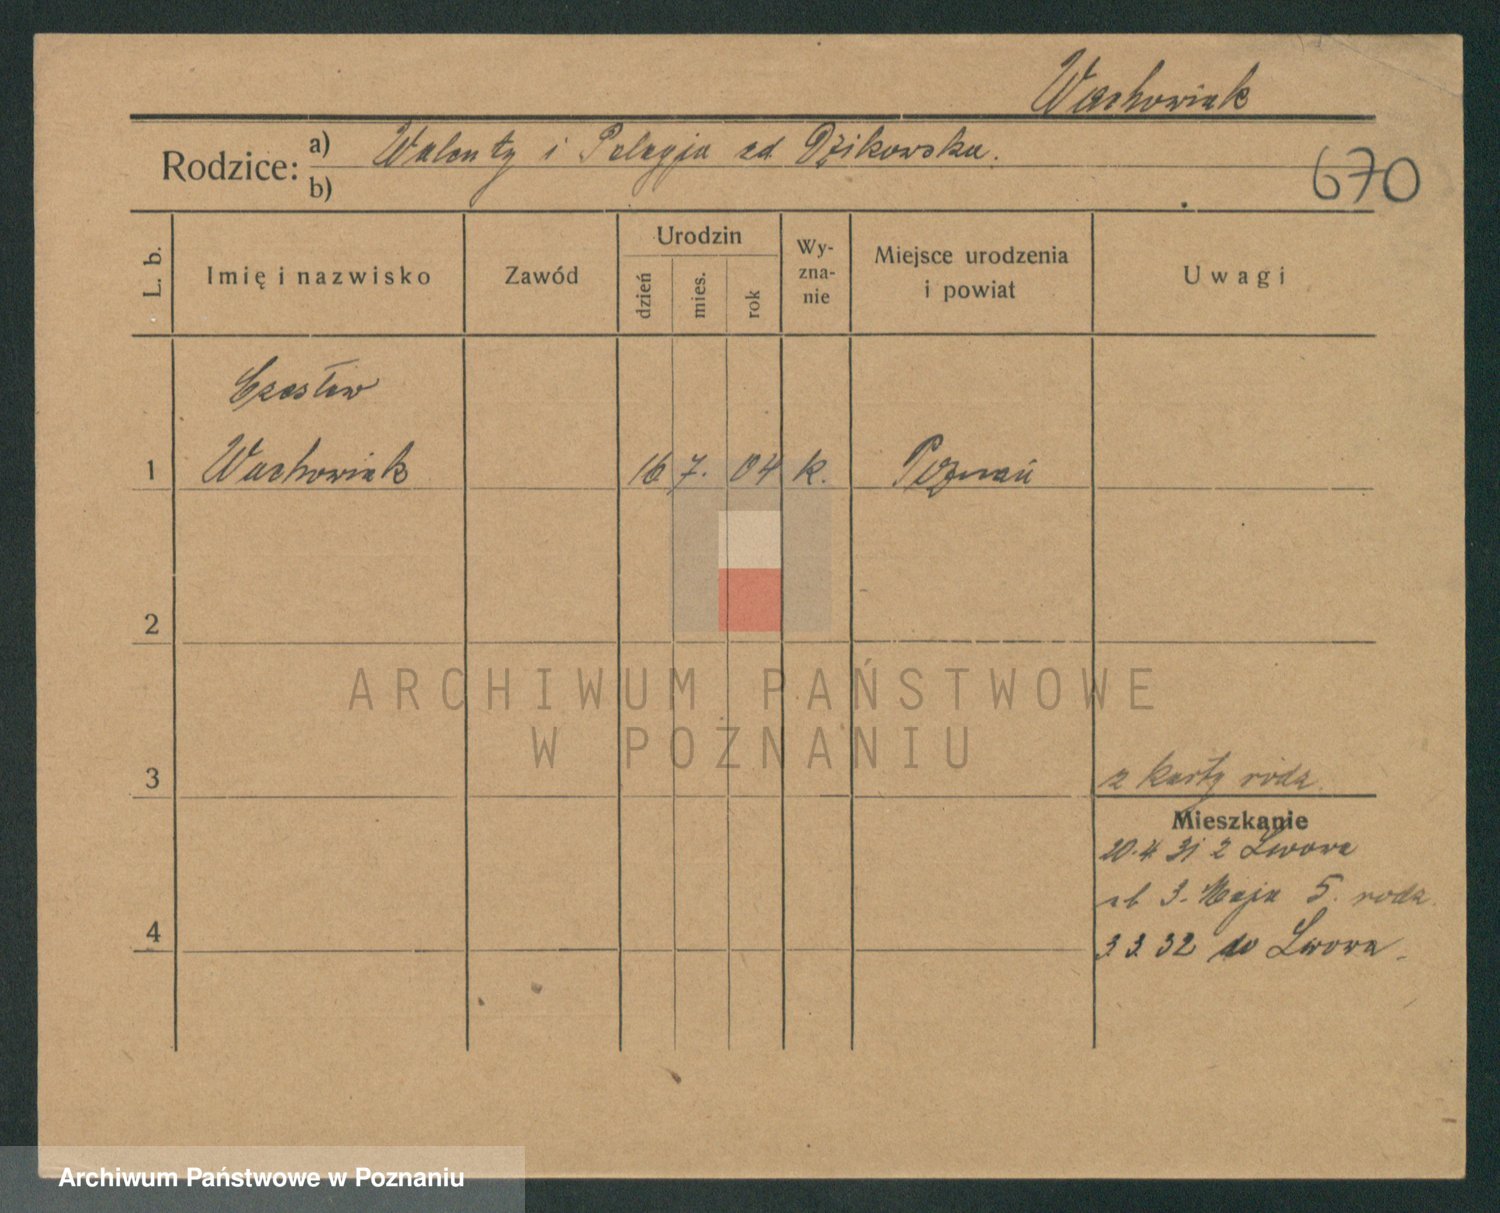 Wachowiak
Rodzice: a) Walenty i Pelagja zd Dzikowska.
b)
670
L. b.
Imię i nazwisko
Zawód
Urodzin
dzień
mies.
rok
Wy-
zna-
nie
Miejsce urodzenia
i powiat
Uwagi
Czesław
1 Wachowiak 16 7. 04 k. Poznań
2
ARCHIWUM PAŃSTWOWE
W POZNANIU
3
z karty rodz.
Mieszkanie
20.4 31 z Lwowa
3. Maja 5. rodz.
4
3 3. 32 do Lwowa.
Archiwum Państwowe w Poznaniu